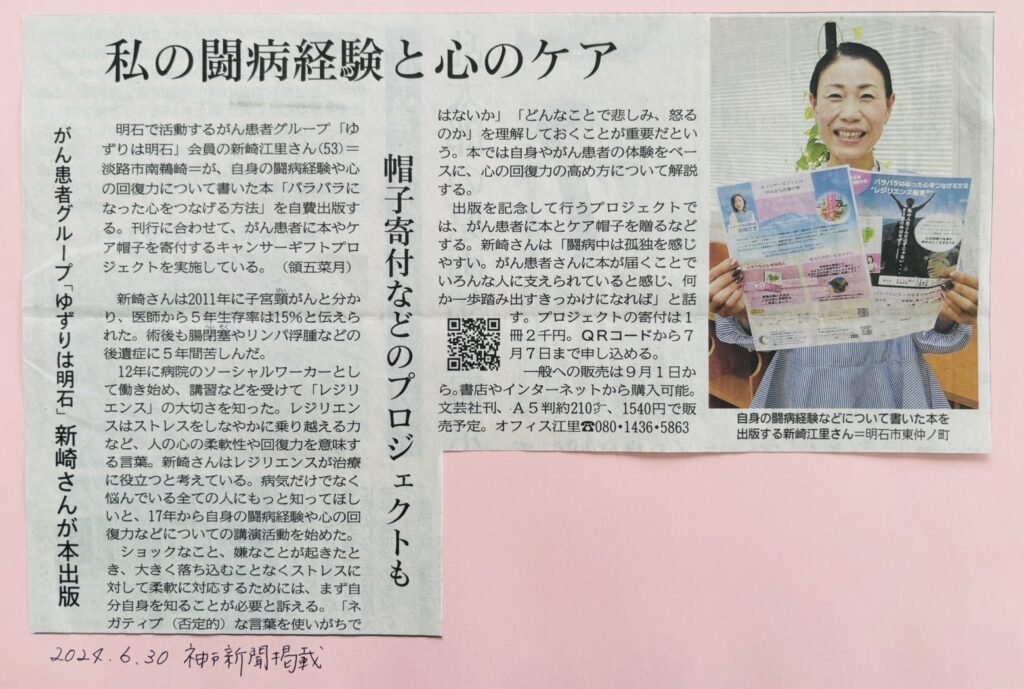 私の闘病経験と心のケア
がん患者グループ「ゆずりは明石」新崎さんが本出版
帽子寄付などのプロジェクトも
明石で活動するがん患者グループ「ゆ
ずりは明石」会員の新崎江里さん(53)＝
淡路市南鵜崎＝が、自身の闘病経験や心
の回復力について書いた本「バラバラに
なった心をつなげる方法」を自費出版す
る。刊行に合わせて、がん患者に本やケ
ア帽子を寄付するキャンサーギフトプロ
ジェクトを実施している。（領五菜月）
新崎さんは2011年に子宮頸がんと分か
り、医師から５年生存率は15％と伝えら
れた。術後も腸閉塞やリンパ浮腫などの
後遺症に５年間苦しんだ。
12年に病院のソーシャルワーカーとし
て働き始め、講習などを受けて「レジリ
エンス」の大切さを知った。レジリエン
スはストレスをしなやかに乗り越える力
など、人の心の柔軟性や回復力を意味す
る言葉。新崎さんはレジリエンスが治療
に役立つと考えている。病気だけでなく
悩んでいる全ての人にもっと知ってほし
いと、17年から自身の闘病経験や心の回
復力などについての講演活動を始めた。
ショックなこと、嫌なことが起きたと
き、大きく落ち込むことなくストレスに
対して柔軟に対応するためには、まず自
分自身を知ることが必要と訴える。「ネ
ガティブ（否定的）な言葉を使いがちで
はないか」「どんなことで悲しみ、怒る
のか」を理解しておくことが重要だとい
う。本では自身やがん患者の体験をベー
スに、心の回復力の高め方について解説
する。
出版を記念して行うプロジェクトで
は、がん患者に本とケア帽子を贈るなど
する。新崎さんは「闘病中は孤独を感じ
やすい。がん患者さんに本が届くことで
いろんな人に支えられていると感じ、何
か一歩踏み出すきっかけになれば」と話
す。プロジェクトの寄付は１
冊２千円。ＱＲコードから７
月７日まで申し込める。
一般への販売は９月１日か
ら。書店やインターネットから購入可能。
文芸社刊、Ａ５判約210㌻、1540円で販
売予定。オフィス江里☎080・1436・5863
バラバラになった心をつなげる方法
"レジリエンス
自身の闘病経験などについて書いた本を
出版する新崎江里さん＝明石市東仲ノ町
2024.6.30 神戸新聞掲載